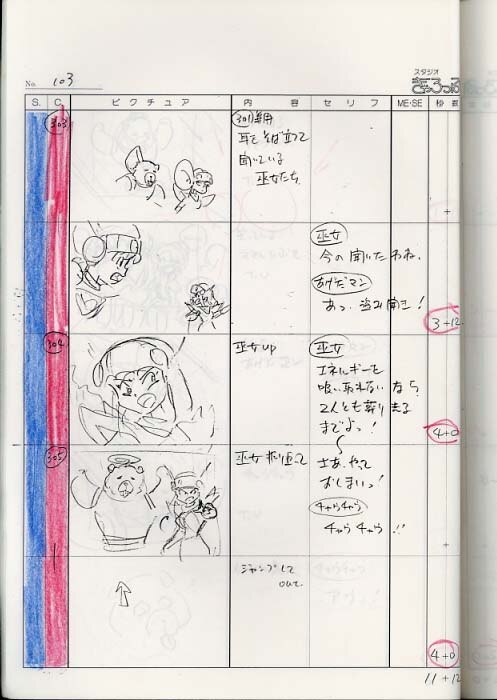 No. 103
スタジオ
ぎゃろっぷ
S. C. ピクチュア 内容 セリフ ME・SE 秒数
303
301兼用
耳をそば立てて
聞いている
巫女たち
+
巫女
今の聞いたわね、
おげだマン
あっ 盗み聞き!
3+12
304
巫女up
巫女
エネルギーを
吸い取れないなら
2人とも葬り去る
までよっ!
4+0
305
巫女振り返って
さあ、やって
おしまいっ!
チャラチャラ
チャラチャラ!!
+
ジャンプして
out.
4+0
11+12